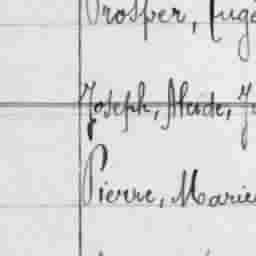 Prosper, Eug
Joseph, Alcide, Ju
Pierre, Marie